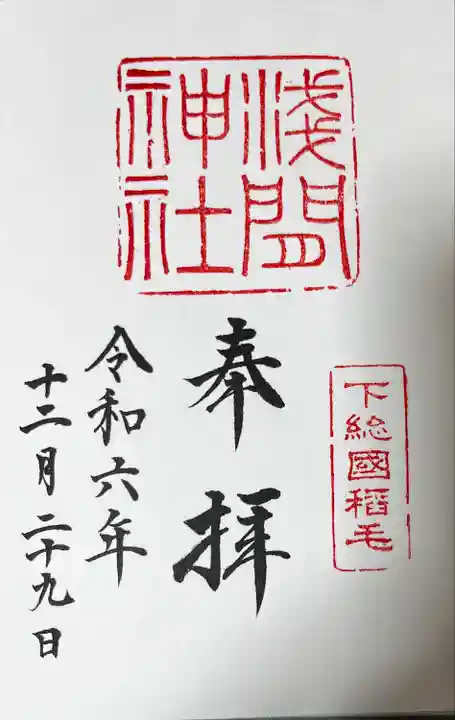 浅間
神社
下総國稲毛
奉拝
令和六年
十二月二十九日